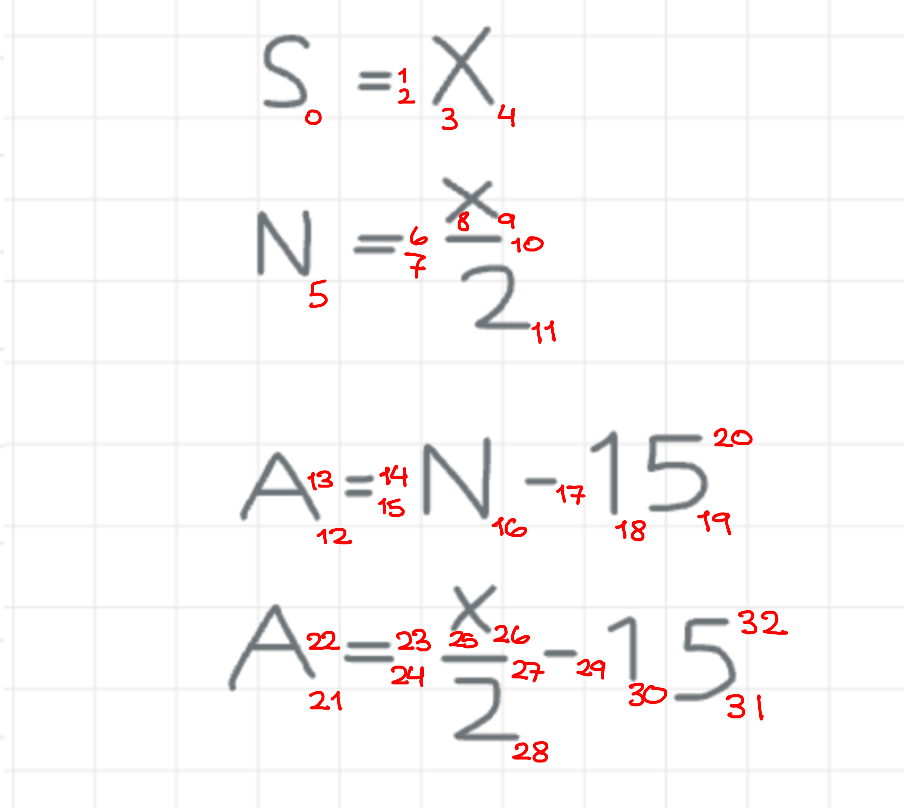 S = X
0 1 2 3 4
N = x/2
5 6 7 8 9 10 11
A = N - 15
12 13 14 15 16 17 18 19 20
A = x/2 - 15
21 22 23 24 25 26 27 28 29 30 31 32